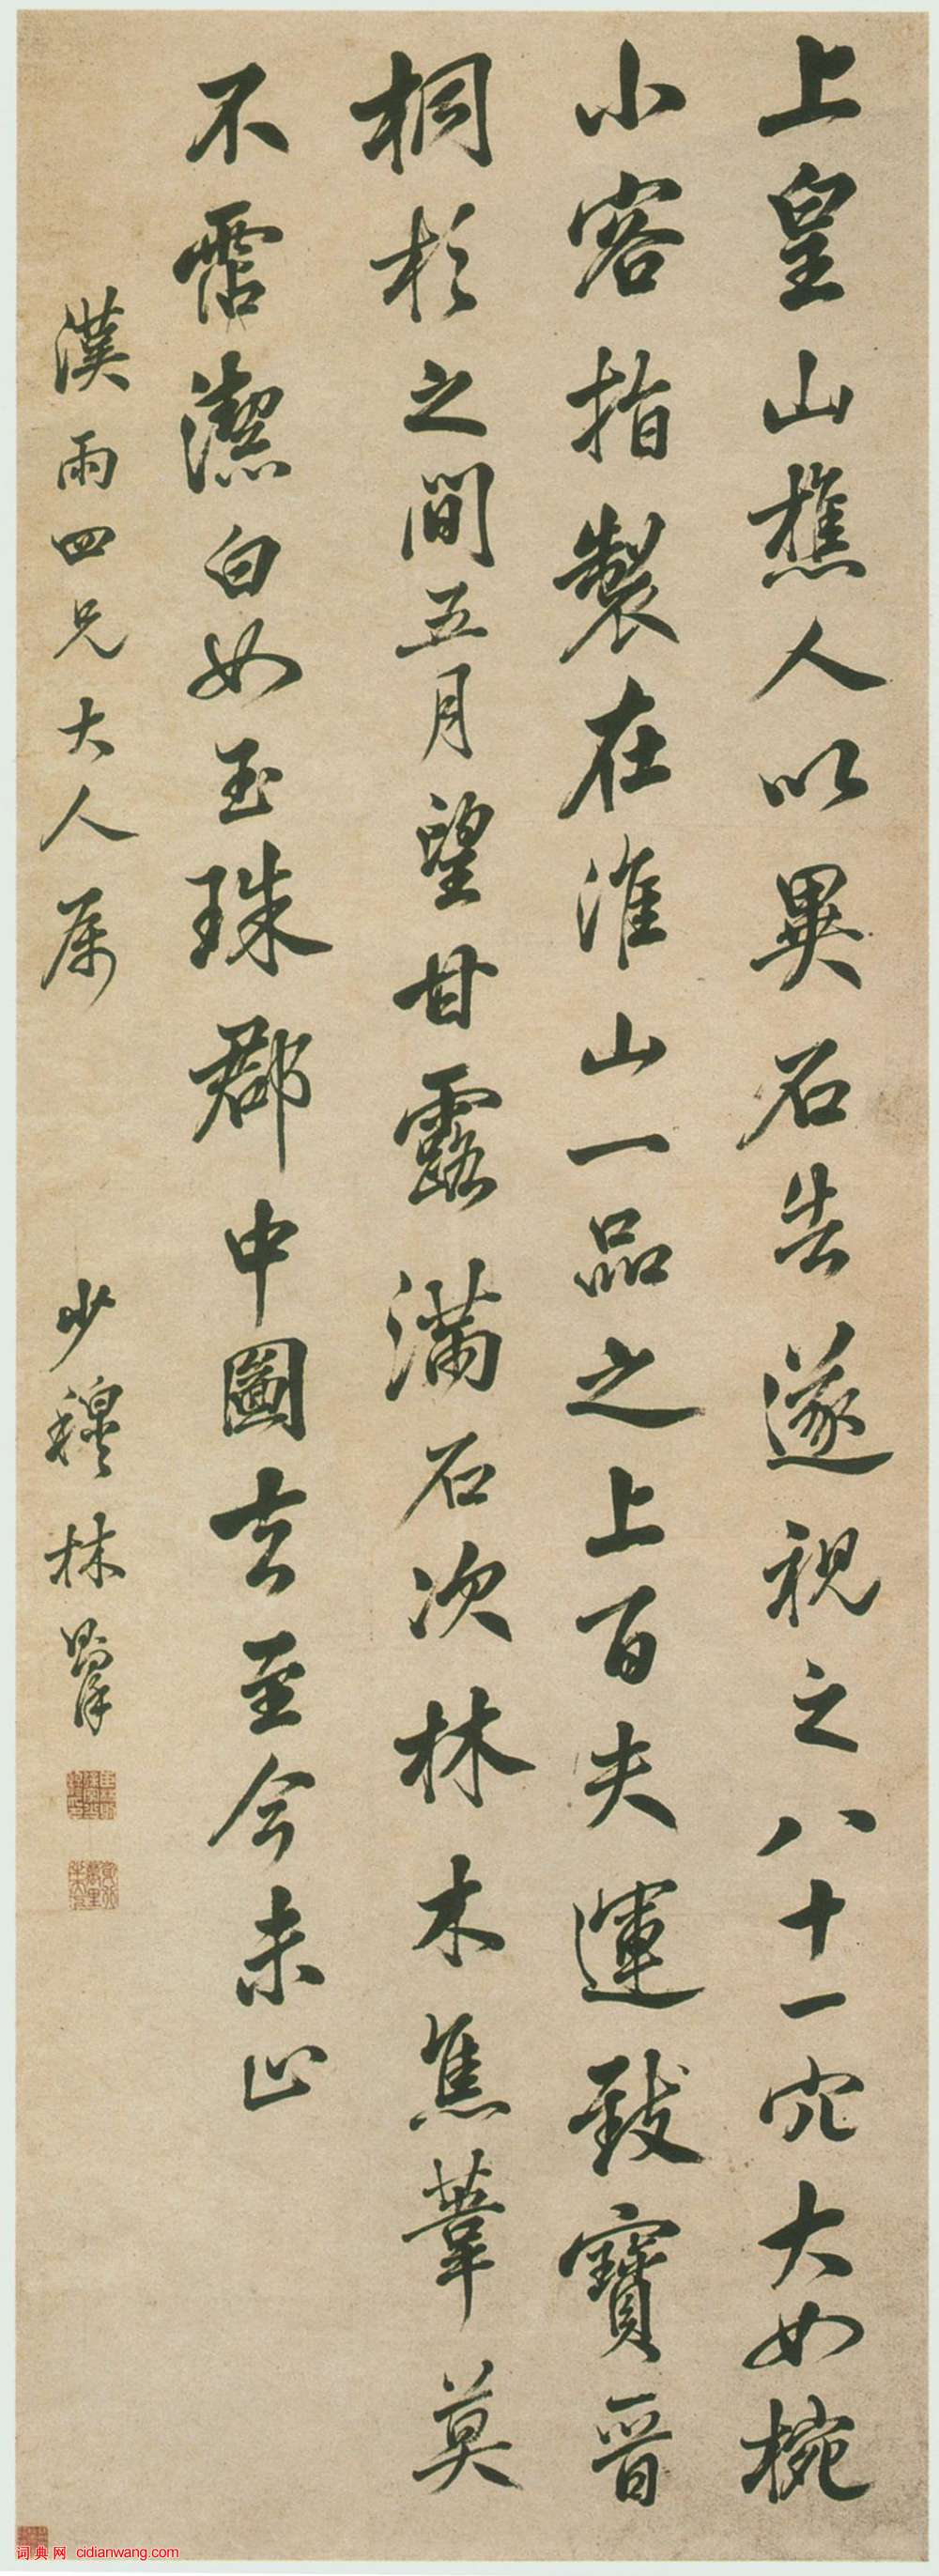 上皇山樵人以異石告遂視之八十一穴大如椀
小容指製在淮山一品之上百夫運致寶晉
桐杉之間五月望甘露滿石次林木焦葦莫
不霑潔白如玉珠郡中圖去至今未止
漢雨四兄大人属
少穆林則徐
词典网 cidianwang.com